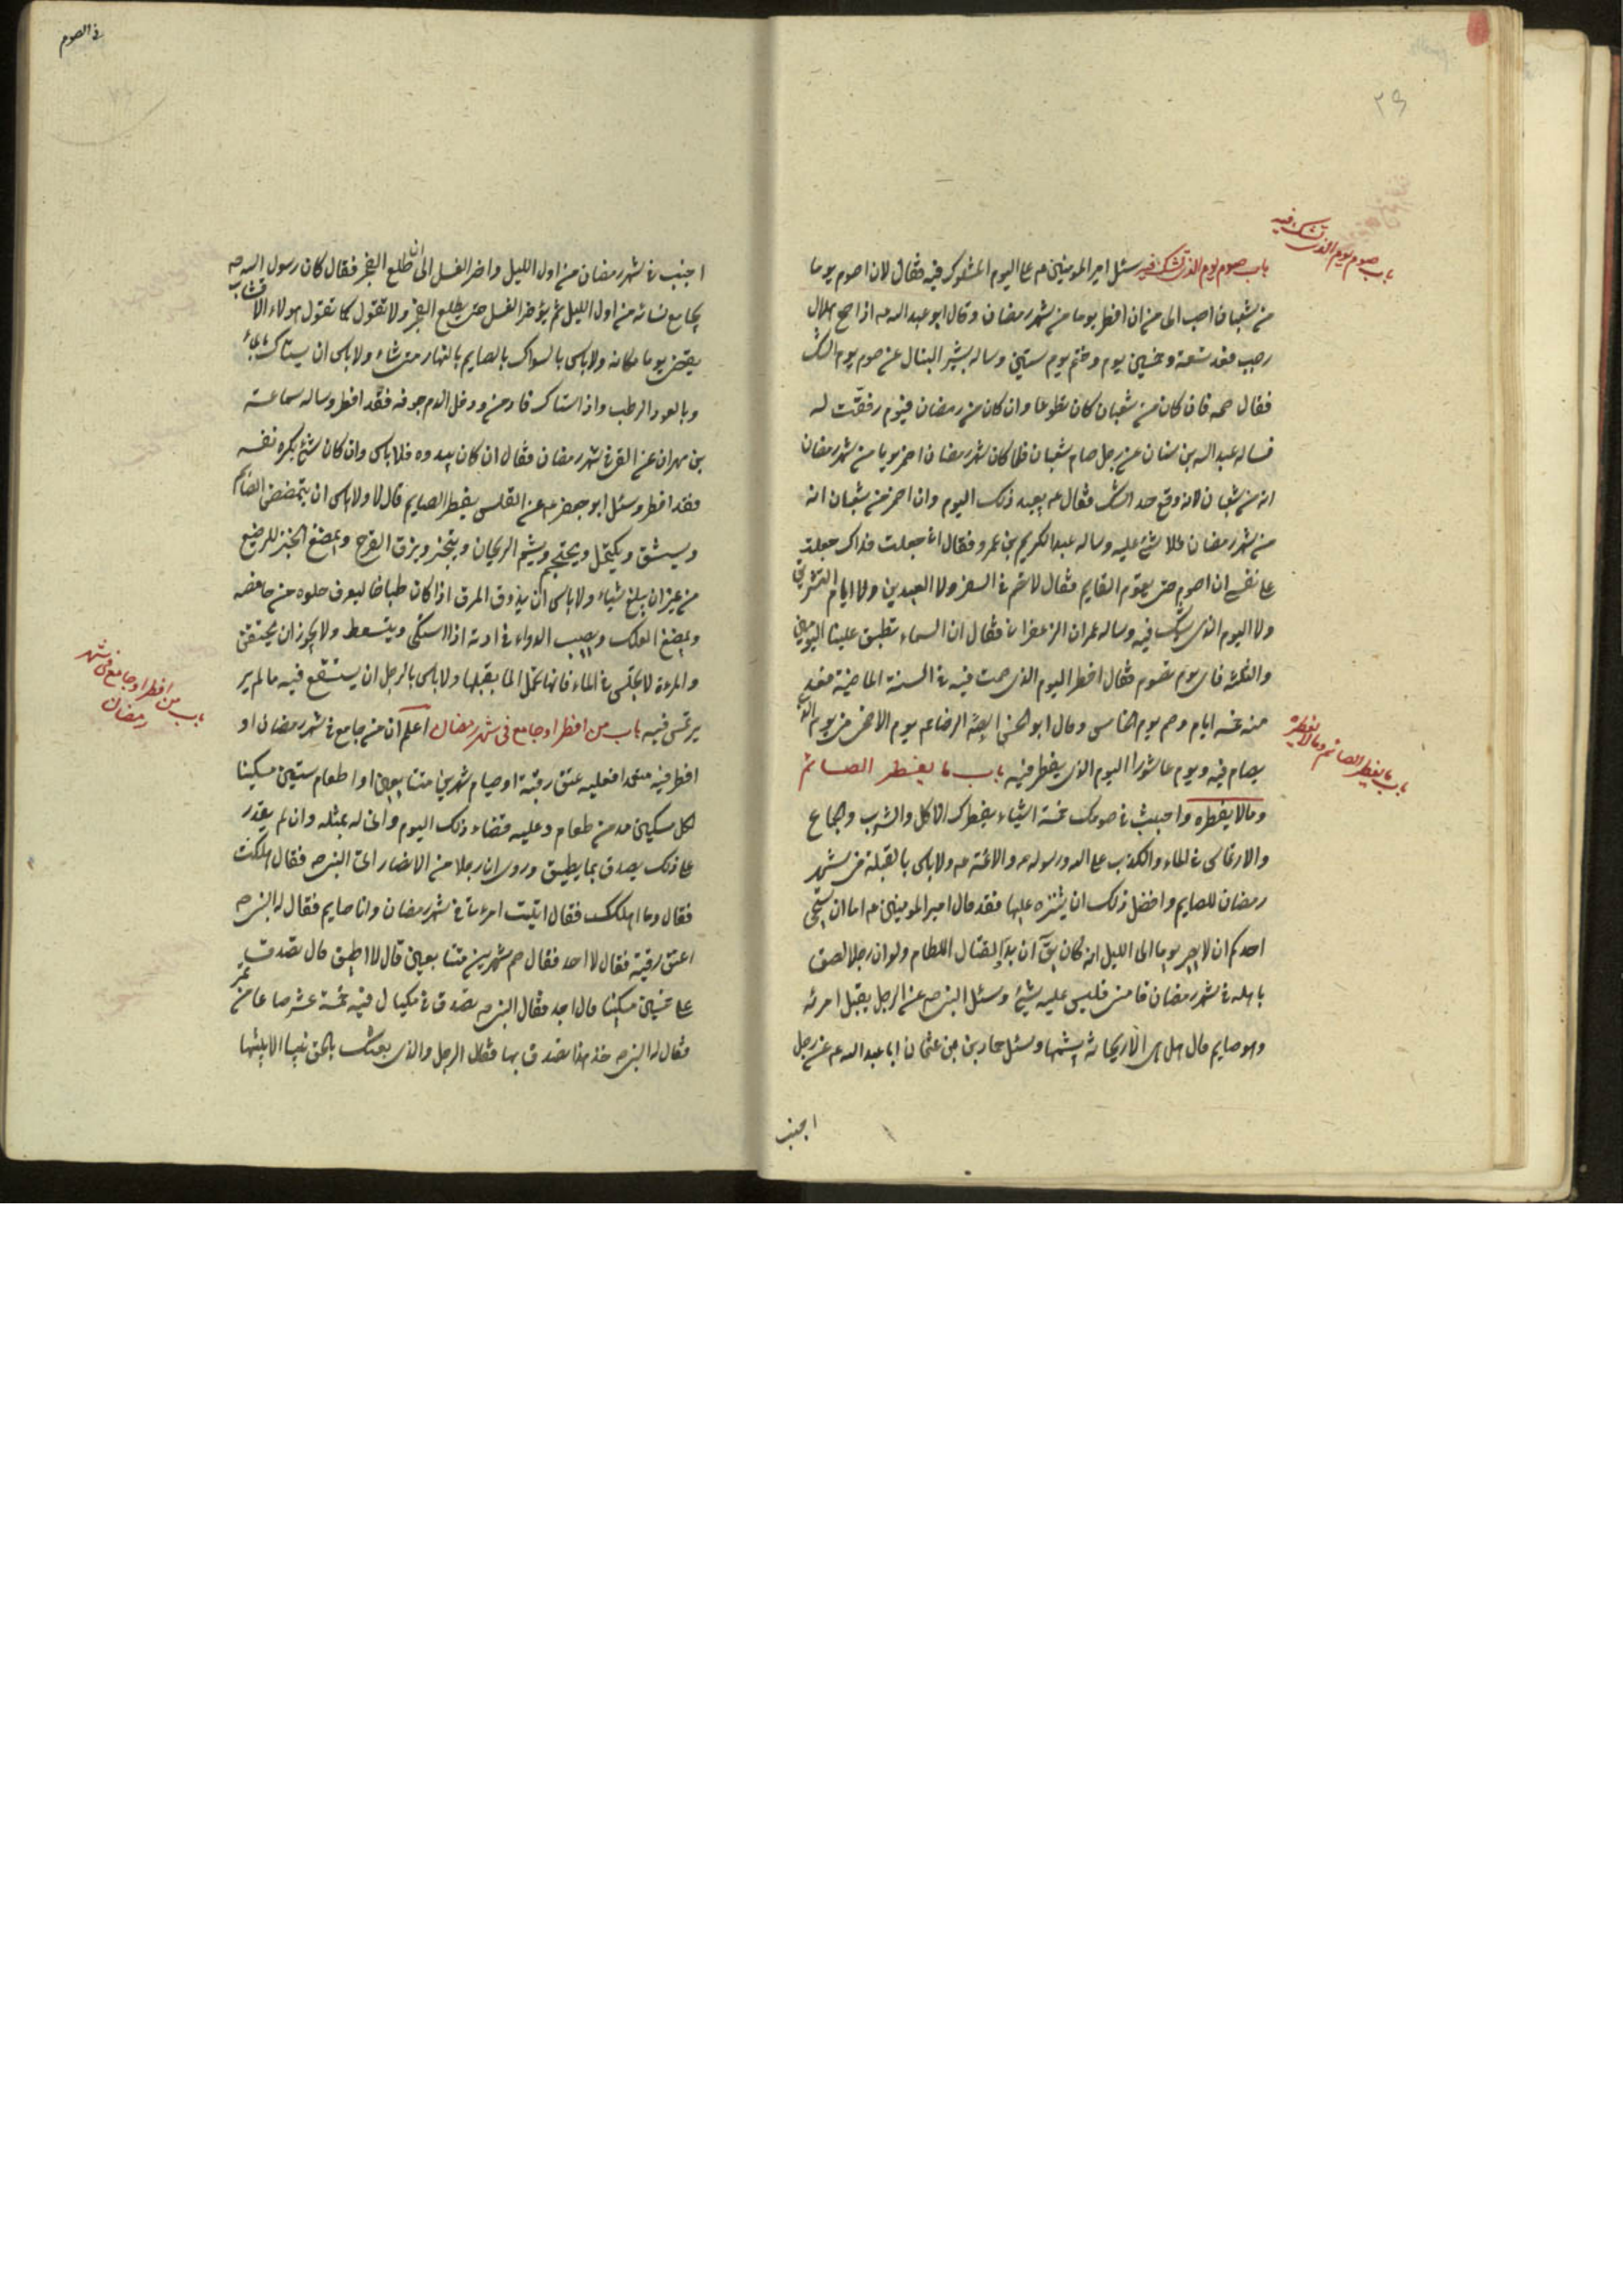 ٢٩
باب صوم يوم الذى تشك فيه
باب صوم يوم الذى تشك فيه وسئل امير المومنين ع عن اليوم المشكوك فيه فقال لان اصوم يوما
من شعبان احب الى من ان افطر يوما من شهر رمضان وقال ابو عبد الله ع اذا صح هلال
رجب فعد تسعة وخمسين يوم وصم يوم ستين وساله بشير النبال عن صوم يوم الشك
فقال صمه فان كان من شعبان كان تطوعا وان كان من رمضان فيوم وفقت له
فساله عبد الله بن سنان عن رجل صام شعبان فلما كان شهر رمضان اضمر يوما من شهر رمضان
انه من شعبان لانه وقع حد الشك فقال ع يعيد ذلك اليوم وان اضمر من شعبان انه
من شهر رمضان فلا شئ عليه وساله عبد الكريم بن عمرو فقال انى جعلت فداك جعلت
على نفسى ان اصوم حتى يقوم القايم فقال لا تصم فى السفر ولا العيدين ولا ايام التشريق
ولا اليوم الذى يشك فيه وساله عمران الزعفرانى فقال ان السماء تطبق علينا اليومين
والثلثة فاى يوم نصوم فقال افطر اليوم الذى صمت فيه فى السنة الماضية فعد
منه خمسة ايام وصم يوم الخامس وقال ابو الحسن الرضا ع يوم الاضحى من يوم الذى
يصام فيه ويوم عاشورا اليوم الذى يفطر فيه باب ما يفطر الصائم
باب ما يفطر الصائم وما لا يفطره
وما لا يفطره واجتنب فى صومك خمسة اشياء يفطرك الاكل والشرب والجماع
والارتماس فى الماء والكذب على الله ورسوله ص والائمة ع ولا باس بالقبلة فى شهر
رمضان للصايم وافضل ذلك ان يتنزه عليها فقد قال امير المومنين ع اما ان يستحى
احدكم ان لا يصبر يوما الى الليل انه كان يق ان بدو القتال اللطام ولو ان رجلا لصق
باهله فى شهر رمضان فامنى فليس عليه شئ وسئل النبى ص عن الرجل يقبل امرئه
وهو صايم قال هل هى الا ريحانة يشمها وسئل حماد بن عثمان ابا عبد الله ع عن رجل
اجنب
فى الصوم
اجنب فى شهر رمضان من اول الليل واخر الغسل الى ان طلع الفجر فقال كان رسول الله ص
يجامع نسائه من اول الليل ثم يؤخر الغسل حتى يطلع الفجر ولا تقول كما تقول هولاء الاقشاب
يقضى يوما مكانه ولا باس بالسواك بالصايم بالنهار متى شاء ولا باس ان يستاك بالماء
وبالعود الرطب واذا استاك فادمى ودخل الدم جوفه فقد افطر وساله سماعة
بن مهران عن القئ فى شهر رمضان فقال ان كان يبدوه فلا باس وان كان شئ يكره نفسه
فقد افطر وسئل ابو جعفر ع عن القلس يفطر الصايم قال لا ولا باس ان يتمضمض الصايم
ويستنشق ويكتحل ويحتجم ويشم الريحان ويتبخر ويزق الفرخ ويمضغ الخبز للرضيع
من غير ان يبلغ شيئا ولا باس ان يذوق المرق اذا كان طباخا ليعرف حلوه من حامضه
ويمضغ العلك ويصب الدواء فى اذنه اذا اشتكى ويتسعط ولا يجوز ان يحتقن
والمرءة لا تجلس فى الماء فانها تحمل الماء بقبلها ولا باس بالرجل ان يستنقع فيه ما لم ير
باب من افطر او جامع فى شهر
رمضان
يرتمس فيه باب من افطر او جامع فى شهر رمضان اعلم ان من جامع فى شهر رمضان او
افطر فيه متعمدا فعليه عتق رقبة او صيام شهرين متتابعين او اطعام ستين مسكينا
لكل مسكين مد من طعام وعليه قضاء ذلك اليوم وانى له بمثله وان لم يقدر
على ذلك يصدق بما يطيق وروى ان رجلا من الانصار اتى النبى ص فقال هلكت
فقال وما اهلكك فقال اتيت امرءتى فى شهر رمضان وانا صايم فقال له النبى ص
اعتق رقبة فقال لا اجد فقال صم شهرين متتابعين قال لا اطيق قال تصدق
على ستين مسكينا قال لا اجد فقال النبى ص تصدق فى مكيال فيه خمسة عشر صاعا من تمر
فقال له النبى ص خذ هذا تصدق بها فقال الرجل والذى بعثك بالحق نبيا